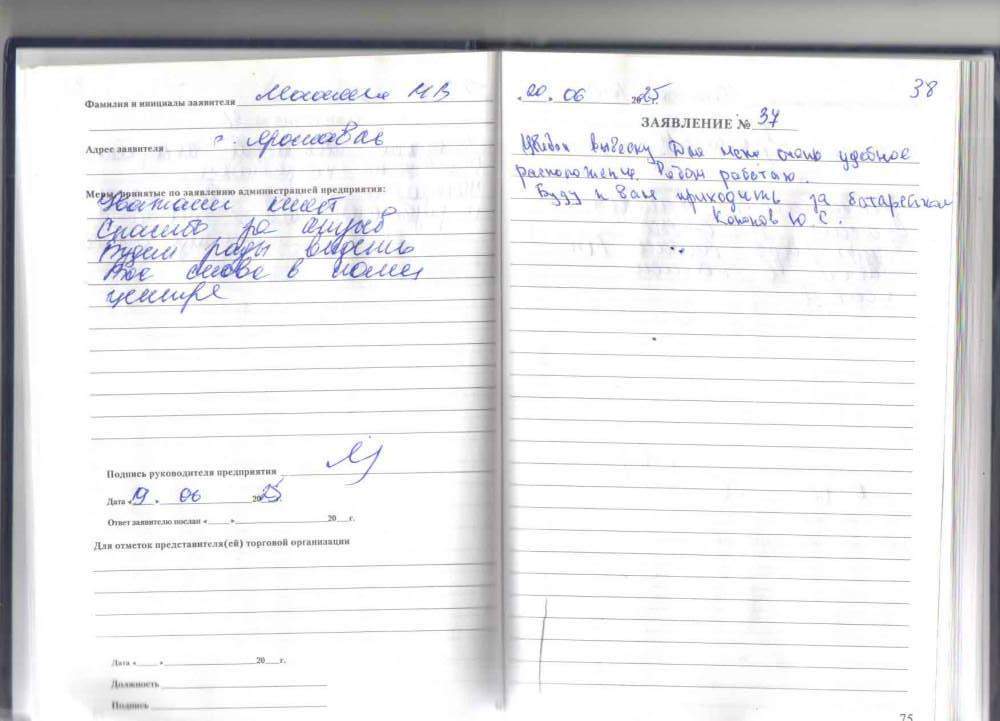 Фамилия и инициалы заявителя М.В
Адрес заявителя г. Ярославль
Меры, принятые по заявлению администрацией предприятия:
Спасибо за отзыв
Будем рады видеть
Вас снова в нашем
центре
Подпись руководителя предприятия
Дата «19» 06 2025
Ответ заявителю послан « » 20 г.
Для отметок представителя(ей) торговой организации
Дата « » 20 г.
Должность
Подпись
38
«20» 06 2025г.
ЗАЯВЛЕНИЕ № 37
Увидел вывеску Для меня очень удобное
расположение. Рядом работаю.
Буду к Вам приходить за батарейками
Кононов Ю. С.
75